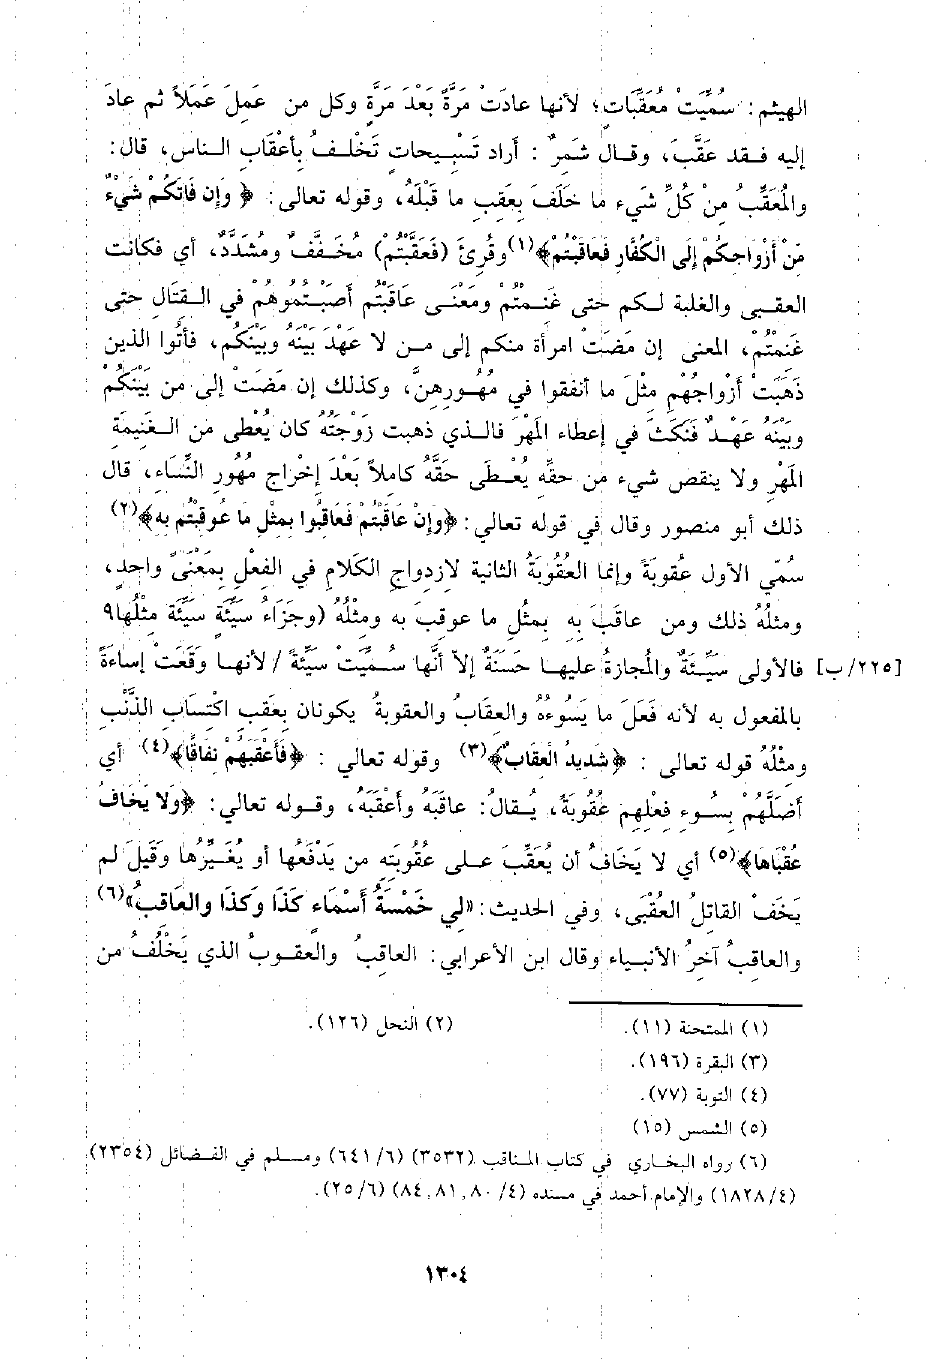 الهيثم: سُمِّيَتْ مُعَقِّبَات؛ لأنها عادَتْ مَرَةً بَعْدَ مَرَّةٍ وكل من عَمِلَ عَمَلاً ثم عادَ
إليه فـقد عَقَّبَ، وقـال شَمِرٌ : أراد تَسْبِـيحات تَخْلـفُ بِأعْقَابِ الـناس، قال:
والمُعَقِّبُ مِنْ كُلِّ شَيء ما خَلَفَ بِعَقِبِ ما قَبْلَهُ، وقوله تعالى: ﴿ وَإِن فَاتَكُمْ شَيْءٌ
مِّنْ أَزْوَاجِكُمْ إِلَى الْكُفَّارِ فَعَاقَبْتُمْ﴾(١) وقُرِئَ (فَعَقَّبْتُم) مُخَفَّفٌ ومُشَدَّدٌ، أي فكانت
العقـبى والغلبة لـكم حتى غَنـمْتُمْ ومَعْنَـى عَاقَبْتُم أصَبْـتُموهُمْ في الـقتَالِ حتى
غَنِمْتُمْ، المعنى إن مَضَتْ امرأة منكم إلى مـن لا عَهْدَ بَيْنَهُ وبَيْنَكُم، فأتُوا الذين
ذَهَبَتْ أَزْواجُهُم مِثْلَ ما أنفقوا في مُهُـورِهِنَّ، وكذلك إن مَضَتْ إلى من بَيْنَكُمْ
وبَيْنَهُ عَهْـدٌ فَنَكَثَ في إعطاء المَهْرَ فالـذي ذهبت زَوْجَتُهُ كان يُعْطى مَن الـغَنِيمَةِ
المَهْرِ ولا ينقص شيء من حقِّه يُعْـطَى حَقَّهُ كاملاً بَعْدَ إخْراجِ مهُورِ النِّسَاء، قال
ذلك أبو منصور وقال في قوله تعالى: ﴿وَإِنْ عَاقَبْتُمْ فَعَاقِبُوا بِمِثْلِ مَا عُوقِبْتُم بِهِ﴾(٢)
سُمِّي الأول عُقوبَةً وإنما العُقُوبَةُ الثانية لازدواجِ الكَلامِ في الفِعْلِ بِمَعْنَىً واحِدٍ،
ومثلُهُ ذلك ومن عاقَبَ بِهِ بِمثْلِ ما عوقِبَ به ومثْلُهُ (وجَزَاءُ سَيِّئَةٍ سَيِّئَة مثْلُها٩
[٢٢٥/ ب] فالأولى سَيِّـئَةٌ والمُجازةُ عليهـا حَسَنَةٌ إلاّ أنَّها سُـمِّيَتْ سَيِّئَةً / لأنهـا وقَعَتْ إساءَةً
بالمفعول به لأنه فَعَلَ ما يَسُوءُهُ والعقَابُ والعقوبةُ يكونان بِعَقِبِ اكْتسَابِ الذَّنْبِ
ومثْلُهُ قوله تعالى : ﴿شَدِيدُ الْعِقَابِ﴾(٣) وقوله تعالى : ﴿فَأَعْقَبَهُمْ نِفَاقًا﴾(٤) أي
أضَلَّهُمْ بِسُـوءِ فِعْلِهِم عُقُوبَةً، يُـقالُ: عاقَبَهُ وأعْقَبَهُ، وقـوله تعالى: ﴿وَلا يَخَافُ
عُقْبَاهَا﴾(٥) أي لا يَخَافُ أن يُعَقِّبَ عـلى عُقُوبَتِهِ من يَدْفَعُها أو يُغَيِّرُها وقِيلَ لم
يَخَفْ القاتِلُ العُقْبَى، وفي الحديث: «لِي خَمْسَةُ أَسْمَاءٍ كَذَا وَكَذَا والعَاقِبُ»(٦)
والعاقِبُ آخِرُ الأنبِـياء وقال ابن الأعرابي: العاقبُ والعقـوبُ الذي يَخْلُفُ من
(١) الممتحنة (١١).
(٢) النحل (١٢٦).
(٣) البقرة (١٩٦).
(٤) التوبة (٧٧).
(٥) الشمس (١٥)
(٦) رواه البخـاري في كتاب المناقب (٣٥٣٢) (٦٤١/٦) ومـسلم في الفـضائل (٢٣٥٤)
(١٨٢٨/٤) والإمام أحمد في مسنده (٤/ ٨٠, ٨١, ٨٤) (٢٥/٦).
١٣٠٤